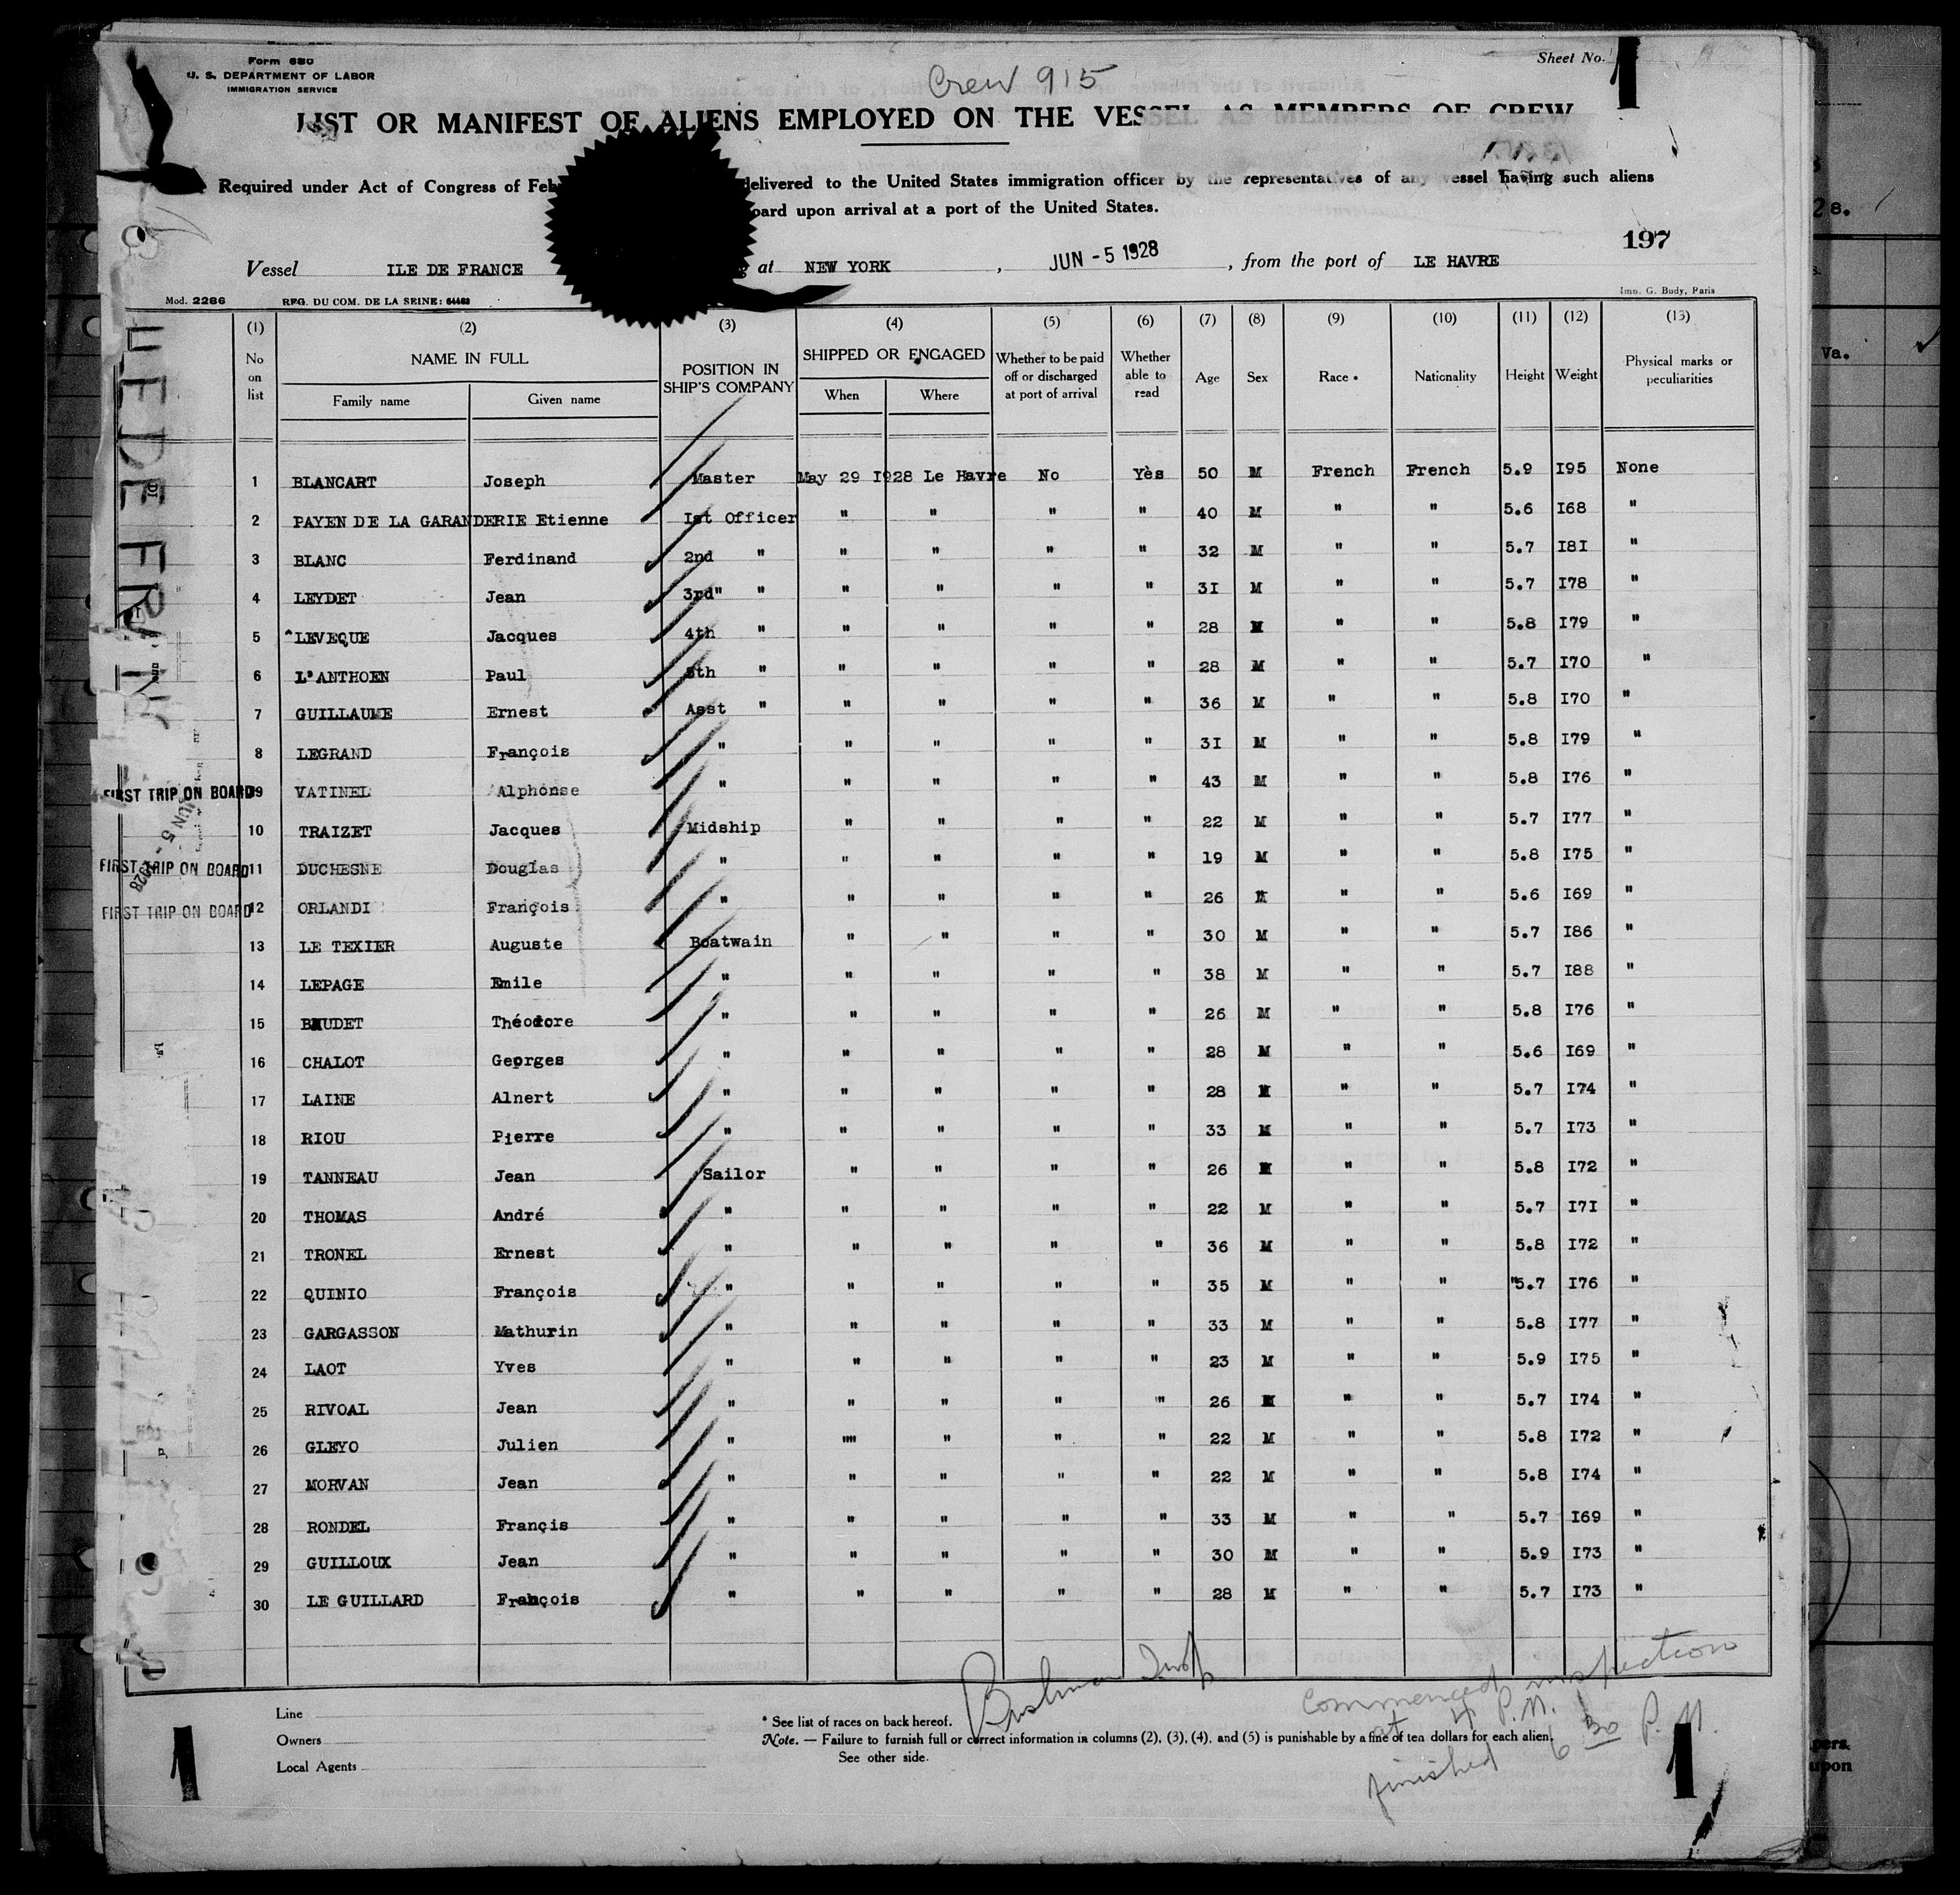 Form 680
U. S. DEPARTMENT OF LABOR
IMMIGRATION SERVICE
Sheet No. 1
Crew 915
LIST OR MANIFEST OF ALIENS EMPLOYED ON THE VESSEL AS MEMBERS OF CREW
Required under Act of Congress of Feb delivered to the United States immigration officer by the representatives of any vessel having such aliens
oard upon arrival at a port of the United States.
197
Vessel ILE DE FRANCE at NEW YORK , JUN - 5 1928 , from the port of LE HAVRE
Mod. 2286 REG. DU COM. DE LA SEINE: 64483 Imp. G. Budy, Paris
(1) (2) (3) (4) (5) (6) (7) (8) (9) (10) (11) (12) (13)
No on list NAME IN FULL Family name Given name POSITION IN SHIP'S COMPANY SHIPPED OR ENGAGED When Where Whether to be paid off or discharged at port of arrival Whether able to read Age Sex Race * Nationality Height Weight Physical marks or peculiarities
1 BLANCART Joseph Master May 29 I928 Le Havre No Yès 50 M French French 5.9 I95 None
2 PAYEN DE LA GARANDERIE Etienne Ist Officer " " " " 40 M " " 5.6 I68 "
3 BLANC Ferdinand 2nd " " " " " 32 M " " 5.7 I8I "
4 LEYDET Jean 3rd" " " " " " 3I M " " 5.7 I78 "
5 LEVEQUE Jacques 4th " " " " " 28 M " " 5.8 I79 "
6 L'ANTHOEN Paul 5th " " " " " 28 M " " 5.7 I70 "
7 GUILLAUME Ernest Asst " " " " " 36 M " " 5.8 I70 "
8 LEGRAND François " " " " " 3I M " " 5.8 I79 "
FIRST TRIP ON BOARD 9 VATINEL Alphonse " " " " " 43 M " " 5.8 I76 "
JUN 5 - 1928
10 TRAIZET Jacques Midship " " " " 22 M " " 5.7 I77 "
FIRST TRIP ON BOARD 11 DUCHESNE Douglas " " " " " 19 M " " 5.8 I75 "
FIRST TRIP ON BOARD 12 ORLANDI François " " " " " 26 M " " 5.6 I69 "
13 LE TEXIER Auguste Boatwain " " " " 30 M " " 5.7 I86 "
14 LEPAGE Emile " " " " " 38 M " " 5.7 I88 "
15 BAUDET Théodore " " " " " 26 M " " 5.8 I76 "
16 CHALOT Georges " " " " " 28 M " " 5.6 I69 "
17 LAINE Alnert " " " " " 28 M " " 5.7 I74 "
18 RIOU Pierre " " " " " 33 M " " 5.7 I73 "
19 TANNEAU Jean Sailor " " " " 26 M " " 5.8 I72 "
20 THOMAS André " " " " " 22 M " " 5.7 I7I "
21 TRONEL Ernest " " " " " 36 M " " 5.8 I72 "
22 QUINIO François " " " " " 35 M " " "5.7 I76 "
23 GARGASSON Mathurin " " " " " 33 M " " 5.8 I77 "
24 LAOT Yves " " " " " 23 M " " 5.9 I75 "
25 RIVOAL Jean " " " " " 26 M " " 5.7 I74 "
26 GLEYO Julien " "" " " " 22 M " " 5.8 I72 "
27 MORVAN Jean " " " " " 22 M " " 5.8 I74 "
28 RONDEL Françis " " " " " 33 M " " 5.7 I69 "
29 GUILLOUX Jean " " " " " 30 M " " 5.9 I73 "
30 LE GUILLARD François " " " " " 28 M " " 5.7 I73 "
Line
Owners
Local Agents
* See list of races on back hereof.
Note. — Failure to furnish full or correct information in columns (2), (3), (4), and (5) is punishable by a fine of ten dollars for each alien.
See other side.
Commenced inspection
at 4 P.M.
finished 6 30 P.M.
1 1